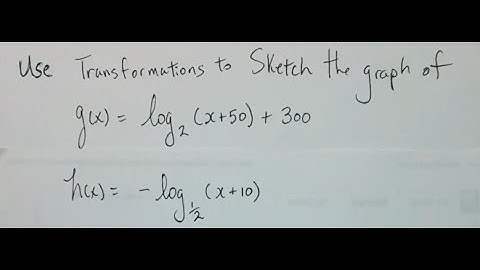 Use Transformations to Sketch the graph of
g(x) = log₂ (x+50) + 300
h(x) = - log_{1/2} (x+10)